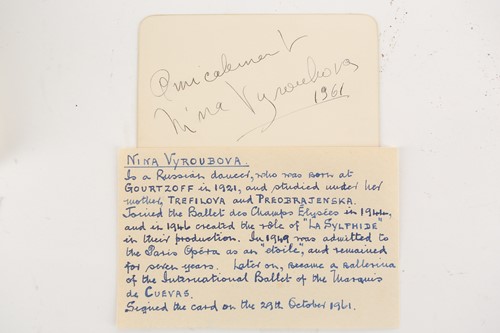 Amicalement
Nina Vyroubova
1961
NINA VYROUBOVA.
Is a Russian dancer, who was born at
GOURTZOFF in 1921, and studied under her
mother, TREFILOVA and PREOBRAJENSKA.
Joined the Ballet des Champs Elysées in 1944,
and in 1946 created the rôle of "LA SYLPHIDE"
in their production. In 1949 was admitted to
the Paris Opéra as an "étoile", and remained
for seven years. Later on, became a ballerina
of the International Ballet of the Marquis
de CUEVAS.
Signed the card on the 29th October 1961.